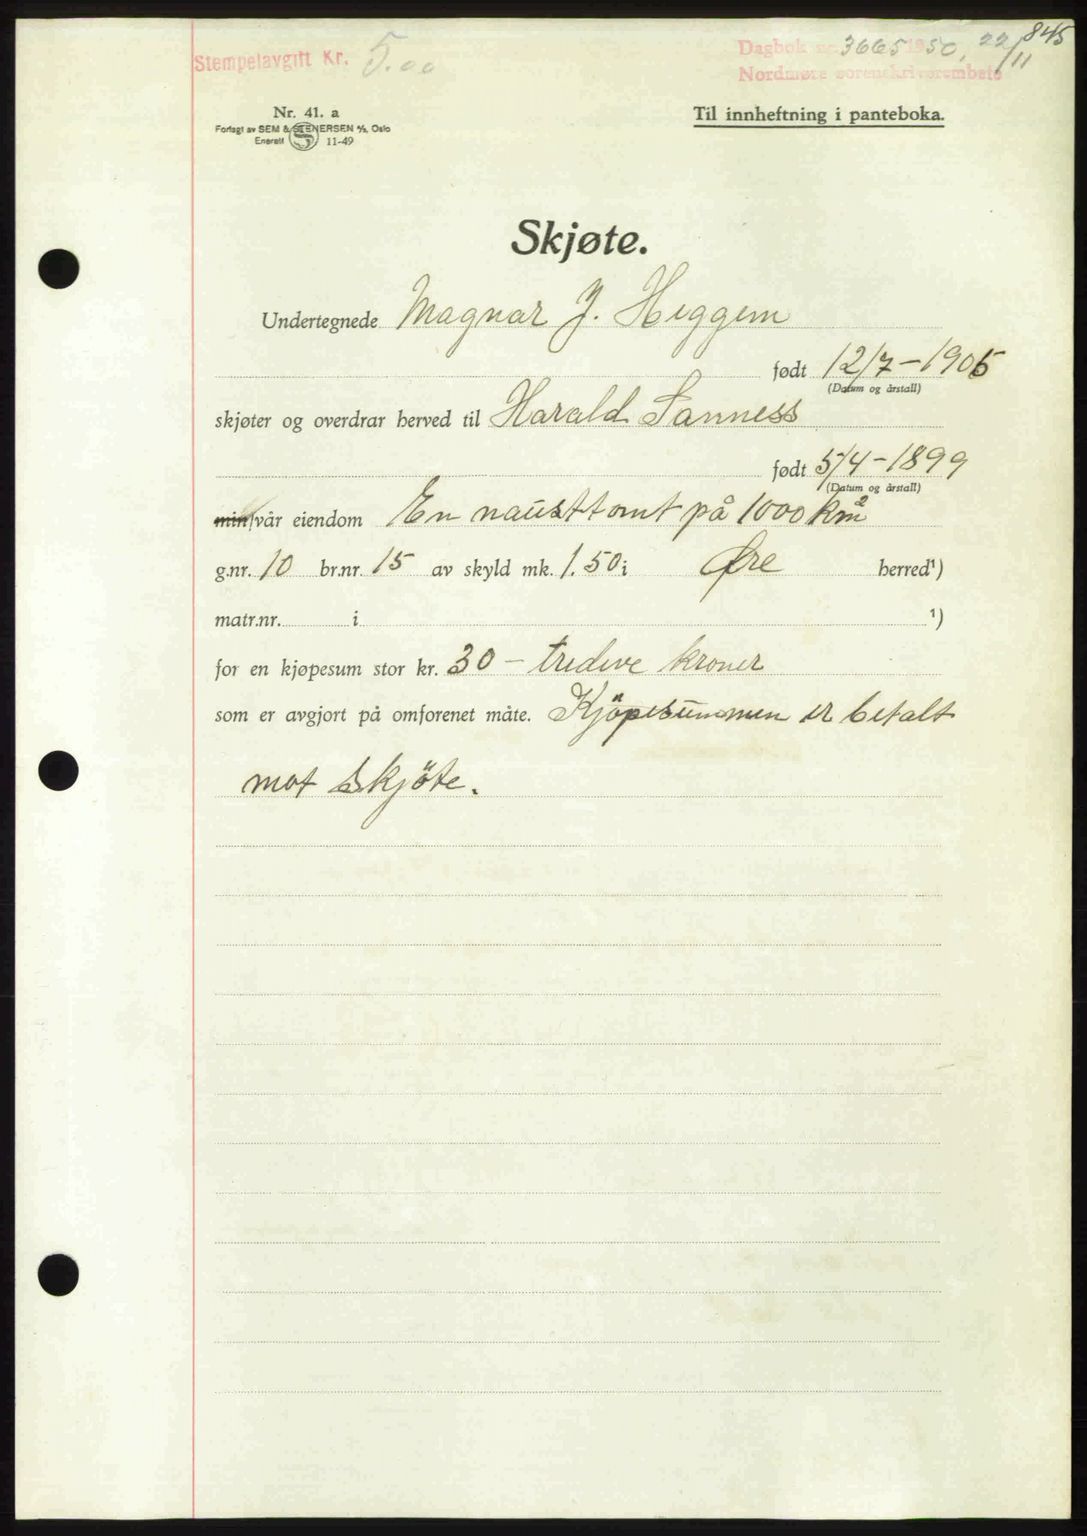 845
Stempelavgift Kr. 5.00
Dagbok nr. 3665 1950, 22/11
Nordmøre sorenskriverembete
Nr. 41. a
Forlagt av SEM & STENERSEN A/S, Oslo
Enerett S 11-49
Til innheftning i panteboka.
Skjøte.
Undertegnede Magnar J. Heggem
født 12/7-1905
(Datum og årstall)
skjøter og overdrar herved til Harald Sanness
født 5/4-1899
(Datum og årstall)
min/vår eiendom En nausttomt på 1000 km²
g.nr. 10 br.nr. 15 av skyld mk. 1.50 i Øre herred¹)
matr.nr. i ¹)
for en kjøpesum stor kr. 30 - tredive kroner
som er avgjort på omforenet måte. Kjöpesummen er betalt
mot skjöte.